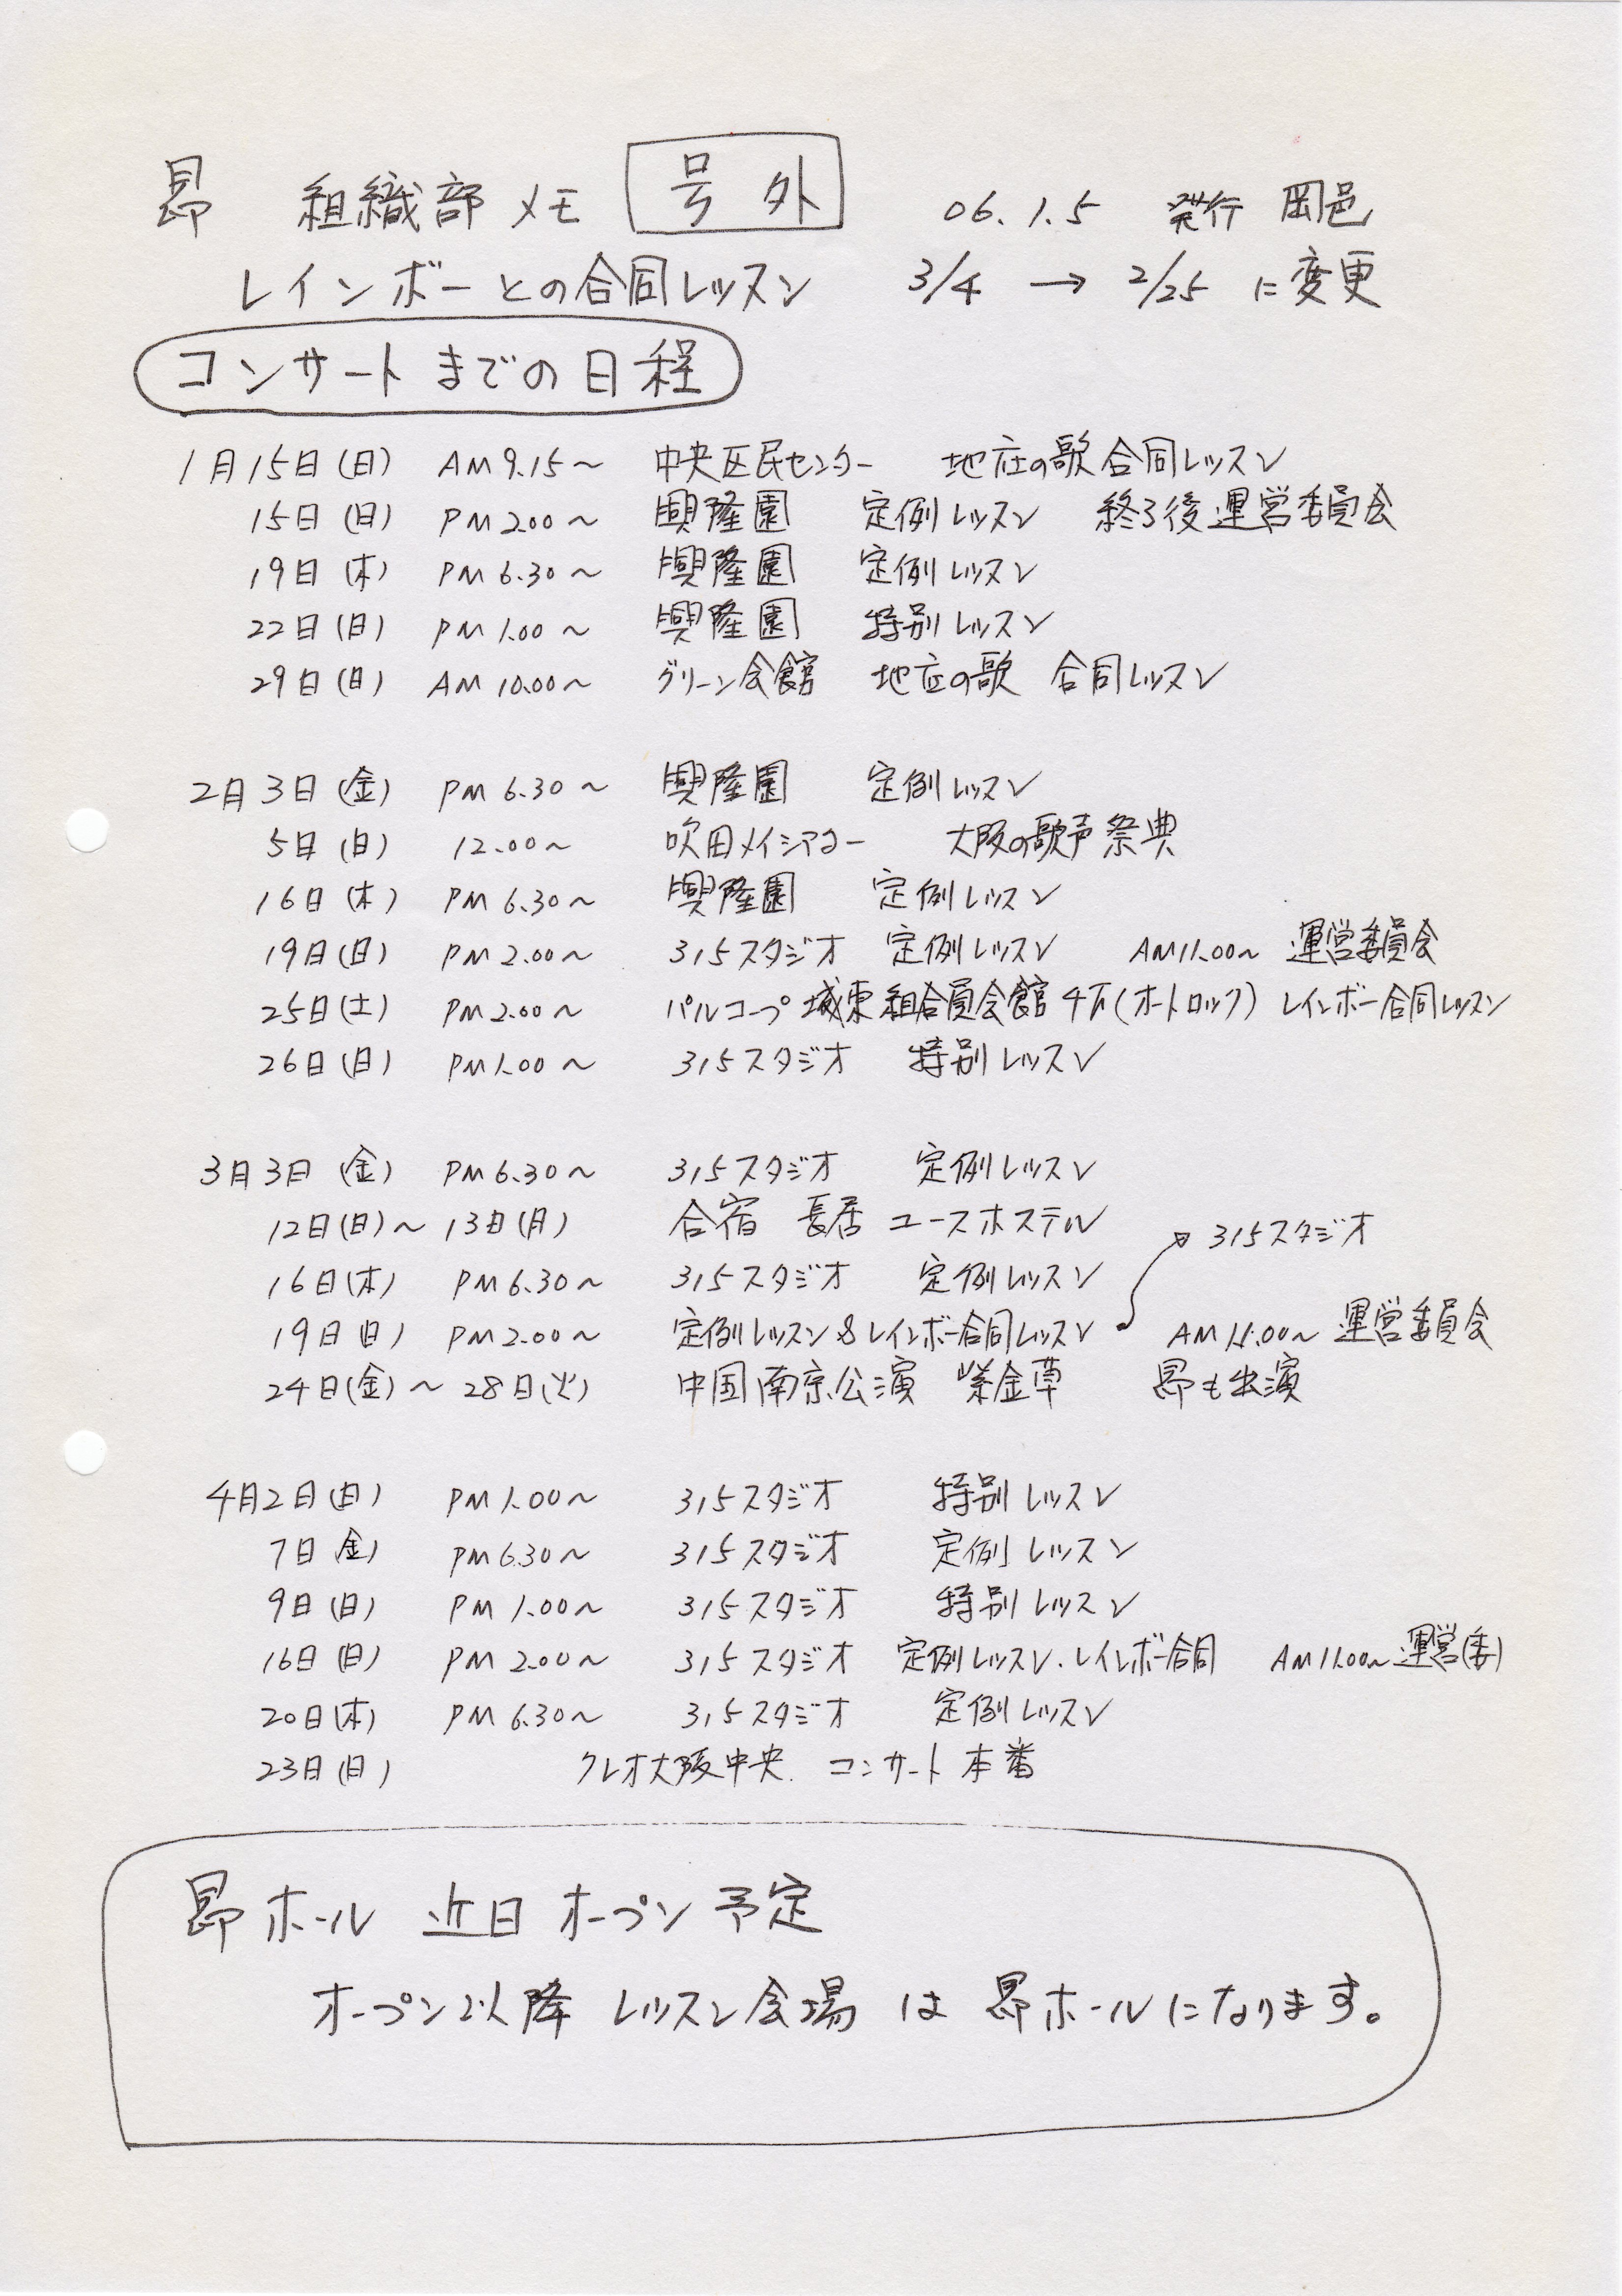 昴 組織部メモ 号外 06.1.5 発行 岡邑
レインボーとの合同レッスン 3/4 → 2/25 に変更
コンサートまでの日程
1月15日(日) AM9.15～ 中央区民センター 地底の歌合同レッスン
15日(日) PM2.00～ 興隆園 定例レッスン 終了後運営委員会
19日(木) PM6.30～ 興隆園 定例レッスン
22日(日) PM1.00～ 興隆園 特別レッスン
29日(日) AM10.00～ グリーン会館 地底の歌 合同レッスン
2月3日(金) PM6.30～ 興隆園 定例レッスン
5日(日) 12.00～ 吹田メイシアター 大阪の歌声祭典
16日(木) PM6.30～ 興隆園 定例レッスン
19日(日) PM2.00～ 315スタジオ 定例レッスン AM11.00～ 運営委員会
25日(土) PM2.00～ パルコープ城東組合員会館 4F(オートロック) レインボー合同レッスン
26日(日) PM1.00～ 315スタジオ 特別レッスン
3月3日(金) PM6.30～ 315スタジオ 定例レッスン
12日(日)～13日(月) 合宿 長居ユースホステル
315スタジオ
16日(木) PM6.30～ 315スタジオ 定例レッスン
19日(日) PM2.00～ 定例レッスン&レインボー合同レッスン AM11.00～ 運営委員会
24日(金)～28日(火) 中国南京公演 紫金草 昴も出演
4月2日(日) PM1.00～ 315スタジオ 特別レッスン
7日(金) PM6.30～ 315スタジオ 定例レッスン
9日(日) PM1.00～ 315スタジオ 特別レッスン
16日(日) PM2.00～ 315スタジオ 定例レッスン.レインボー合同 AM11.00～運営(委)
20日(木) PM6.30～ 315スタジオ 定例レッスン
23日(日) クレオ大阪中央. コンサート本番
昴ホール 近日オープン予定
オープン以降 レッスン会場は昴ホールになります。